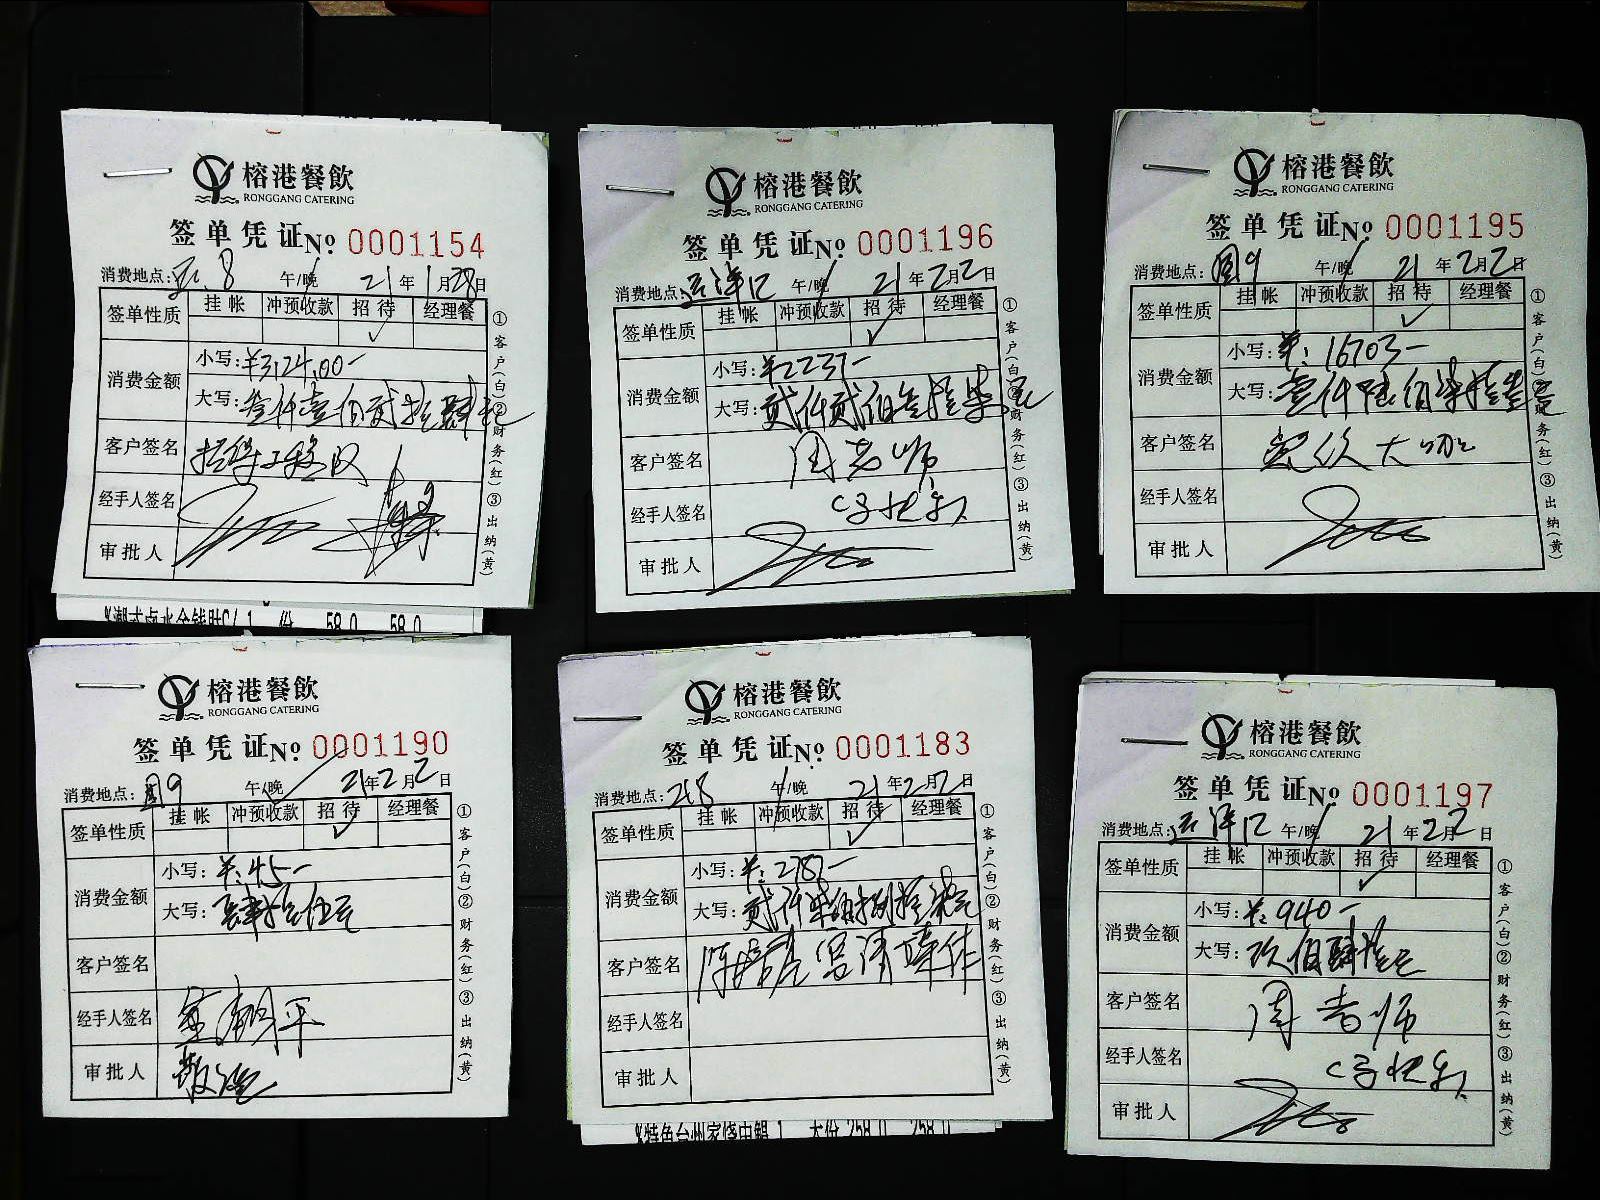 榕港餐飲
RONGGANG CATERING
签单凭证 No 0001154
消费地点: 8 午/晚 21年1月28日
签单性质 挂帐 冲预收款 招待 经理餐
✓
消费金额 小写:¥3124.00-
大写:叁仟壹佰贰拾肆元
客户签名
经手人签名
审批人
①客户(白)②财务(红)③出纳(黄)
58.0 58.0
榕港餐飲
RONGGANG CATERING
签单凭证 No 0001196
消费地点: 午/晚 21年2月2日
签单性质 挂帐 冲预收款 招待 经理餐
✓
消费金额 小写:¥2237-
大写:贰仟贰佰叁拾柒元
客户签名 周老师
经手人签名
审批人
①客户(白)②财务(红)③出纳(黄)
榕港餐飲
RONGGANG CATERING
签单凭证 No 0001195
消费地点: 9 午/晚 21年2月2日
签单性质 挂帐 冲预收款 招待 经理餐
✓
消费金额 小写:¥:1670
大写:壹仟陆佰柒拾
客户签名
经手人签名
审批人
①客户(白)②财务(红)③出纳(黄)
榕港餐飲
RONGGANG CATERING
签单凭证 No 0001190
消费地点: 9 午/晚 21年2月2日
签单性质 挂帐 冲预收款 招待 经理餐
✓
消费金额 小写:¥:45-
大写:肆拾伍元
客户签名
经手人签名
审批人
①客户(白)②财务(红)③出纳(黄)
榕港餐飲
RONGGANG CATERING
签单凭证 No 0001183
消费地点: 268 午/晚 21年2月2日
签单性质 挂帐 冲预收款 招待 经理餐
✓
消费金额 小写:¥:2787-
大写:贰仟柒佰捌拾柒元
客户签名
经手人签名
审批人
①客户(白)②财务(红)③出纳(黄)
特色台州家烧中鲳 1 大份 258.0 258.0
榕港餐飲
RONGGANG CATERING
签单凭证 No 0001197
消费地点: 午/晚 21年2月2日
签单性质 挂帐 冲预收款 招待 经理餐
✓
消费金额 小写:¥:940-
大写:玖佰肆拾元
客户签名 周老师
经手人签名
审批人
①客户(白)②财务(红)③出纳(黄)